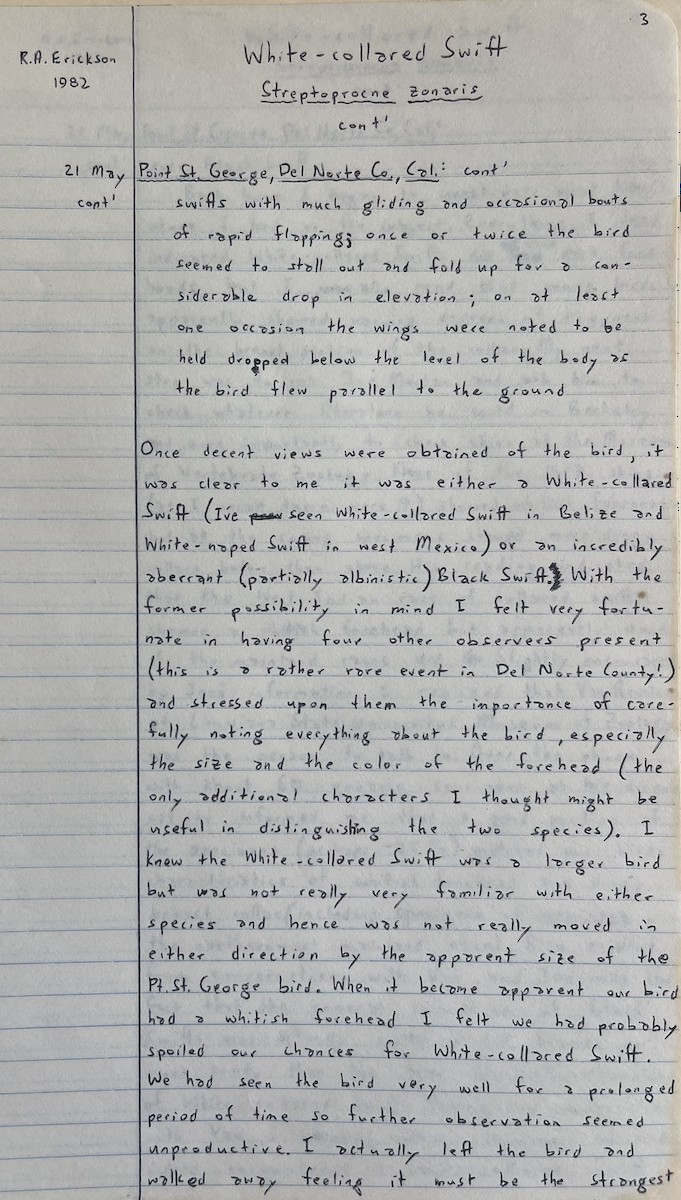 3
R.A. Erickson
1982
White-collared Swift
Streptoprocne zonaris
cont'
21 May
cont'
Point St. George, Del Norte Co., Cal.: cont'
swifts with much gliding and occasional bouts
of rapid flapping; once or twice the bird
seemed to stall out and fold up for a con-
siderable drop in elevation; on at least
one occasion the wings were noted to be
held dropped below the level of the body as
the bird flew parallel to the ground
Once decent views were obtained of the bird, it
was clear to me it was either a White-collared
Swift (I've seen White-collared Swift in Belize and
White-naped Swift in west Mexico) or an incredibly
aberrant (partially albinistic) Black Swift. With the
former possibility in mind I felt very fortu-
nate in having four other observers present
(this is a rather rare event in Del Norte County!)
and stressed upon them the importance of care-
fully noting everything about the bird, especially
the size and the color of the forehead (the
only additional characters I thought might be
useful in distinguishing the two species). I
knew the White-collared Swift was a larger bird
but was not really very familiar with either
species and hence was not really moved in
either direction by the apparent size of the
Pt. St. George bird. When it became apparent our bird
had a whitish forehead I felt we had probably
spoiled our chances for White-collared Swift.
We had seen the bird very well for a prolonged
period of time so further observation seemed
unproductive. I actually left the bird and
walked away feeling it must be the strangest